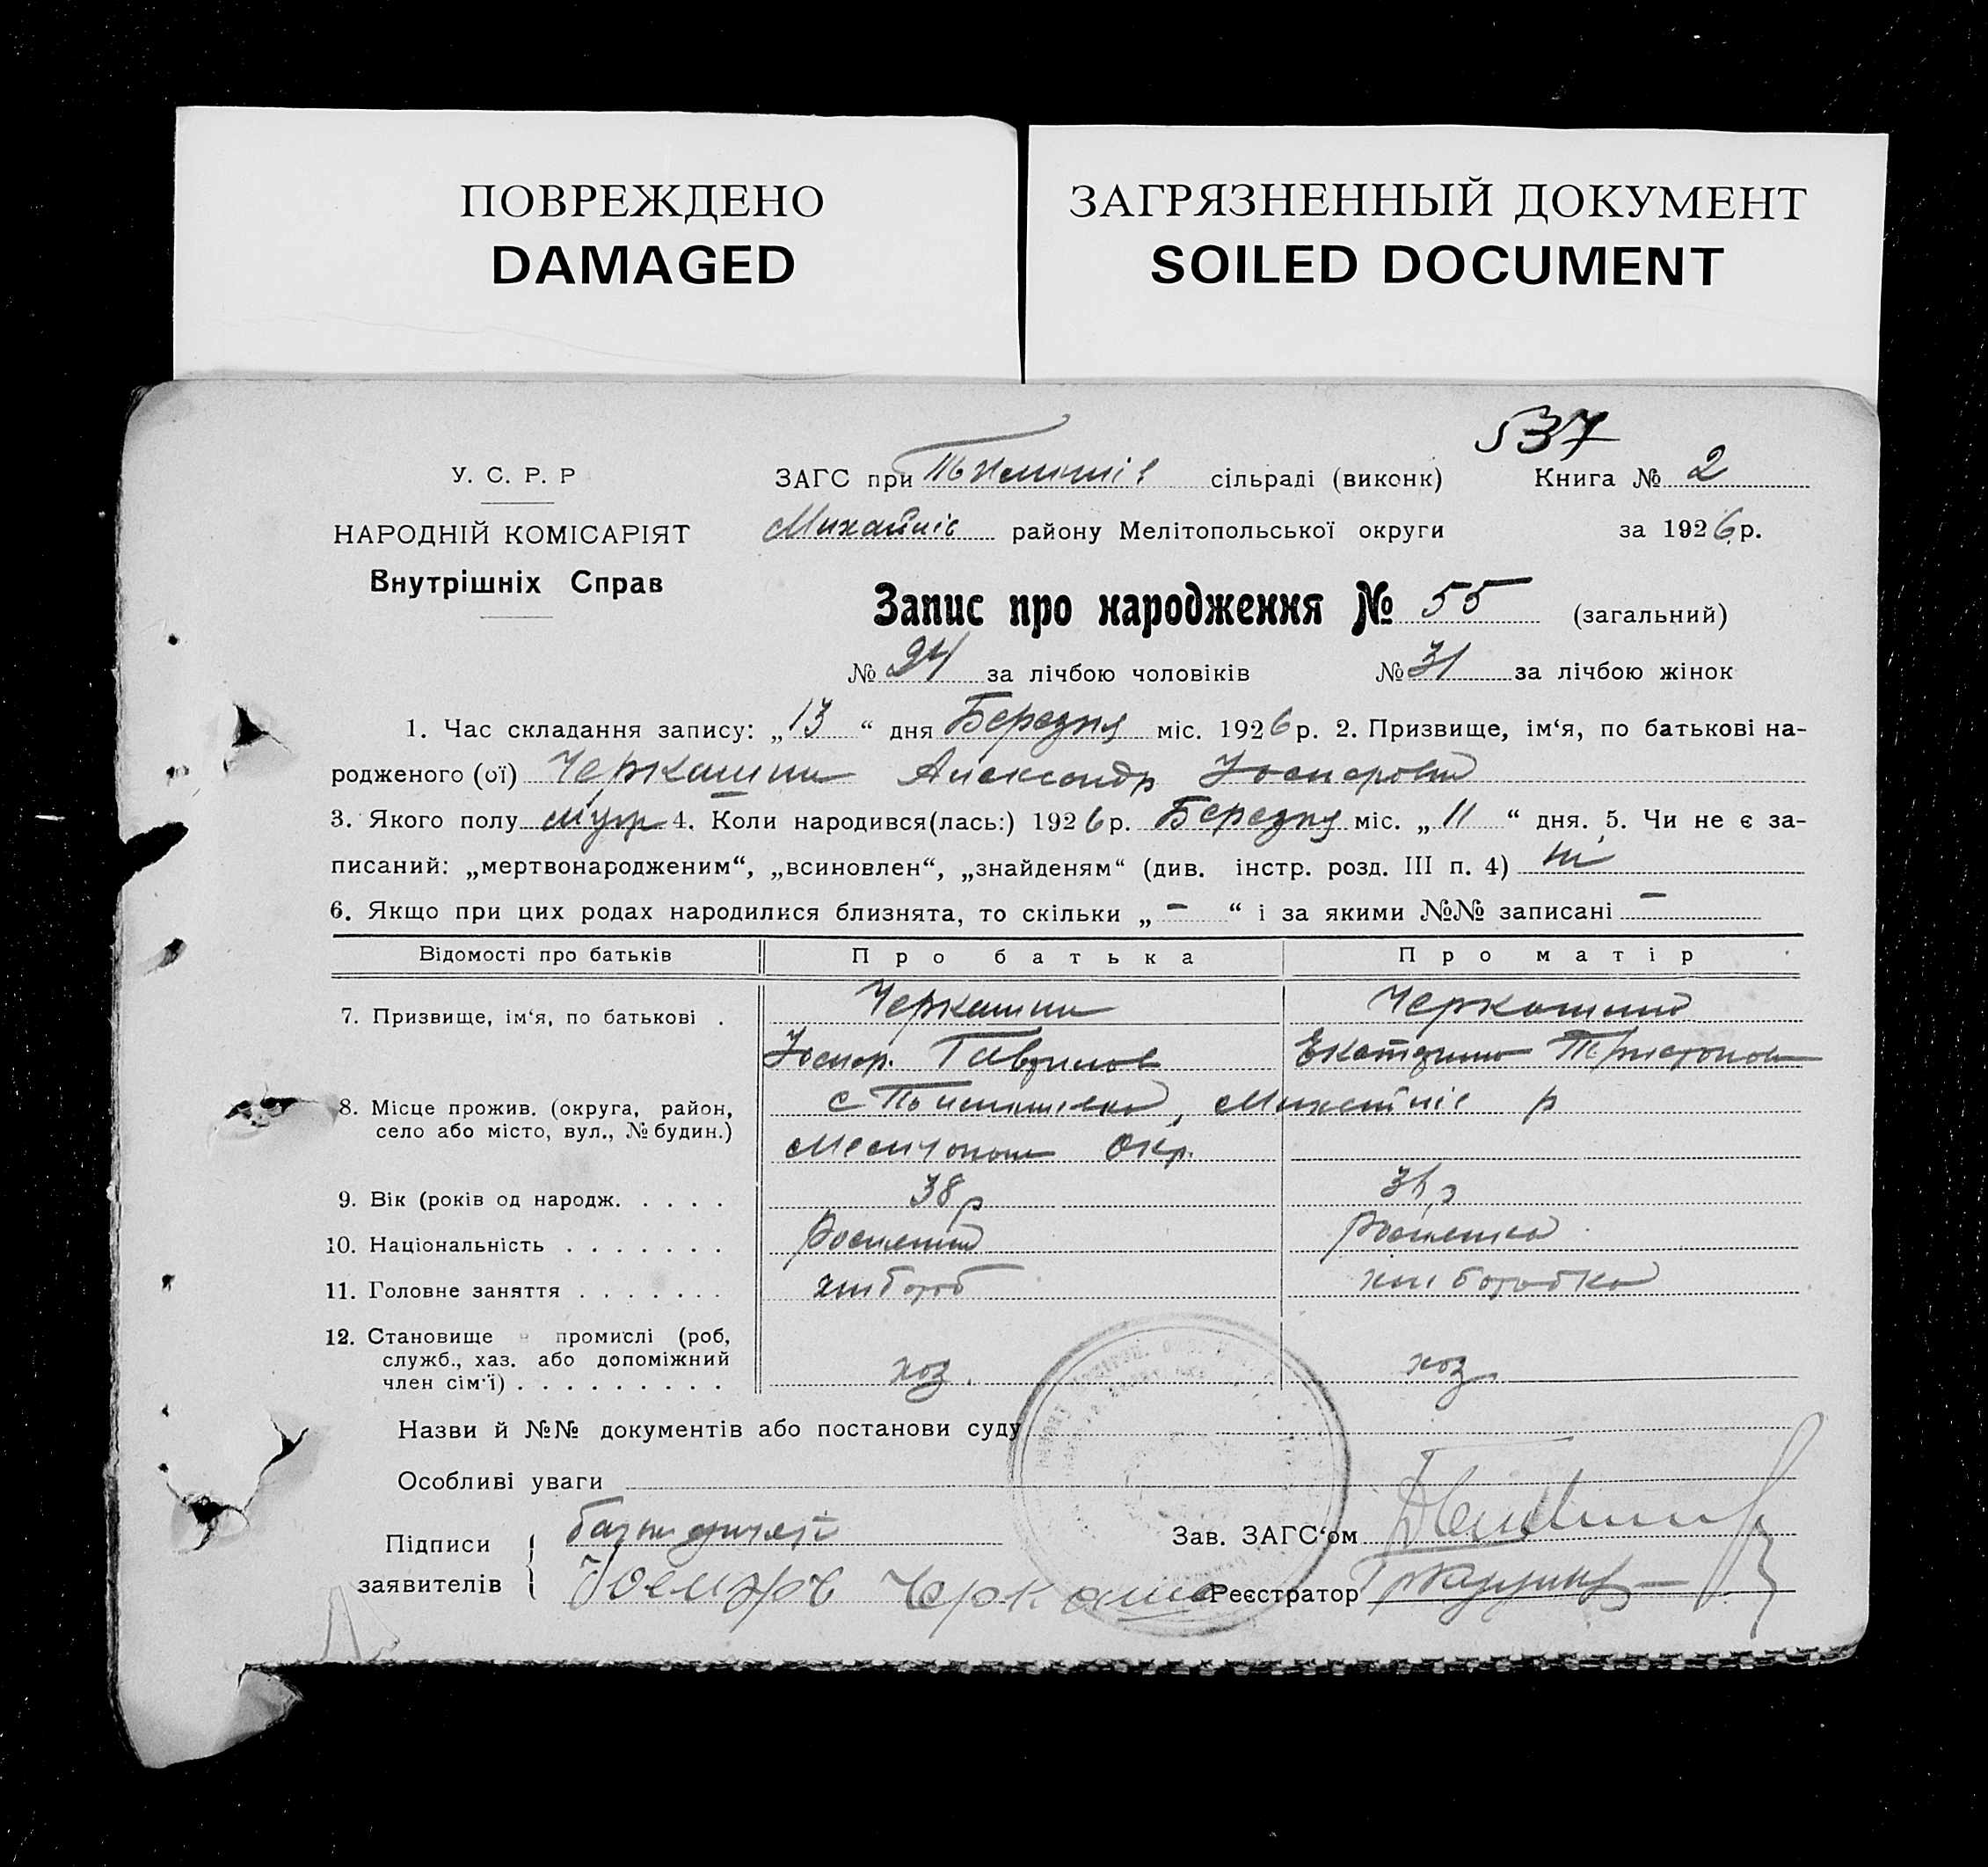 ПОВРЕЖДЕНО
DAMAGED
ЗАГРЯЗНЕННЫЙ ДОКУМЕНТ
SOILED DOCUMENT
537
У. С. Р. Р
НАРОДНІЙ КОМІСАРІЯТ
Внутрішніх Справ
ЗАГС при сільраді (виконк) Книга № 2
Михайліс району Мелітопольської округи за 1926 р.
Запис про народження № 55 (загальний)
№ 24 за лічбою чоловіків № 31 за лічбою жінок
1. Час складання запису: „13“ дня Березня міс. 1926 р. 2. Призвище, ім‘я, по батькові на-
родженого (ої) Черкашин Александр
3. Якого полу муж 4. Коли народився(лась:) 1926 р. Березня міс. „11“ дня. 5. Чи не є за-
писаний: „мертвонародженим“, „всиновлен“, „знайденям“ (див. інстр. розд. III п. 4) ні
6. Якщо при цих родах народилися близнята, то скільки „ - “ і за якими №№ записані -
Відомості про батьків Про батька Про матір
7. Призвище, ім‘я, по батькові . Черкашин Черкашина
Гаврилов Екатерина
8. Місце прожив. (округа, район,
село або місто, вул., № будин.)
с р
Окр.
9. Вік (років од народж. . . . . 38 р
10. Національність . . . . . . .
11. Головне заняття . . . . . . . хлібороб хліборобка
12. Становище в промислі (роб,
служб., хаз. або допоміжний
член сім‘ї) . . . . . . . . . хоз. хоз.
Назви й №№ документів або постанови суду
Особливі уваги
Підписи
заявителів
Зав. ЗАГС‘ом
Реєстратор